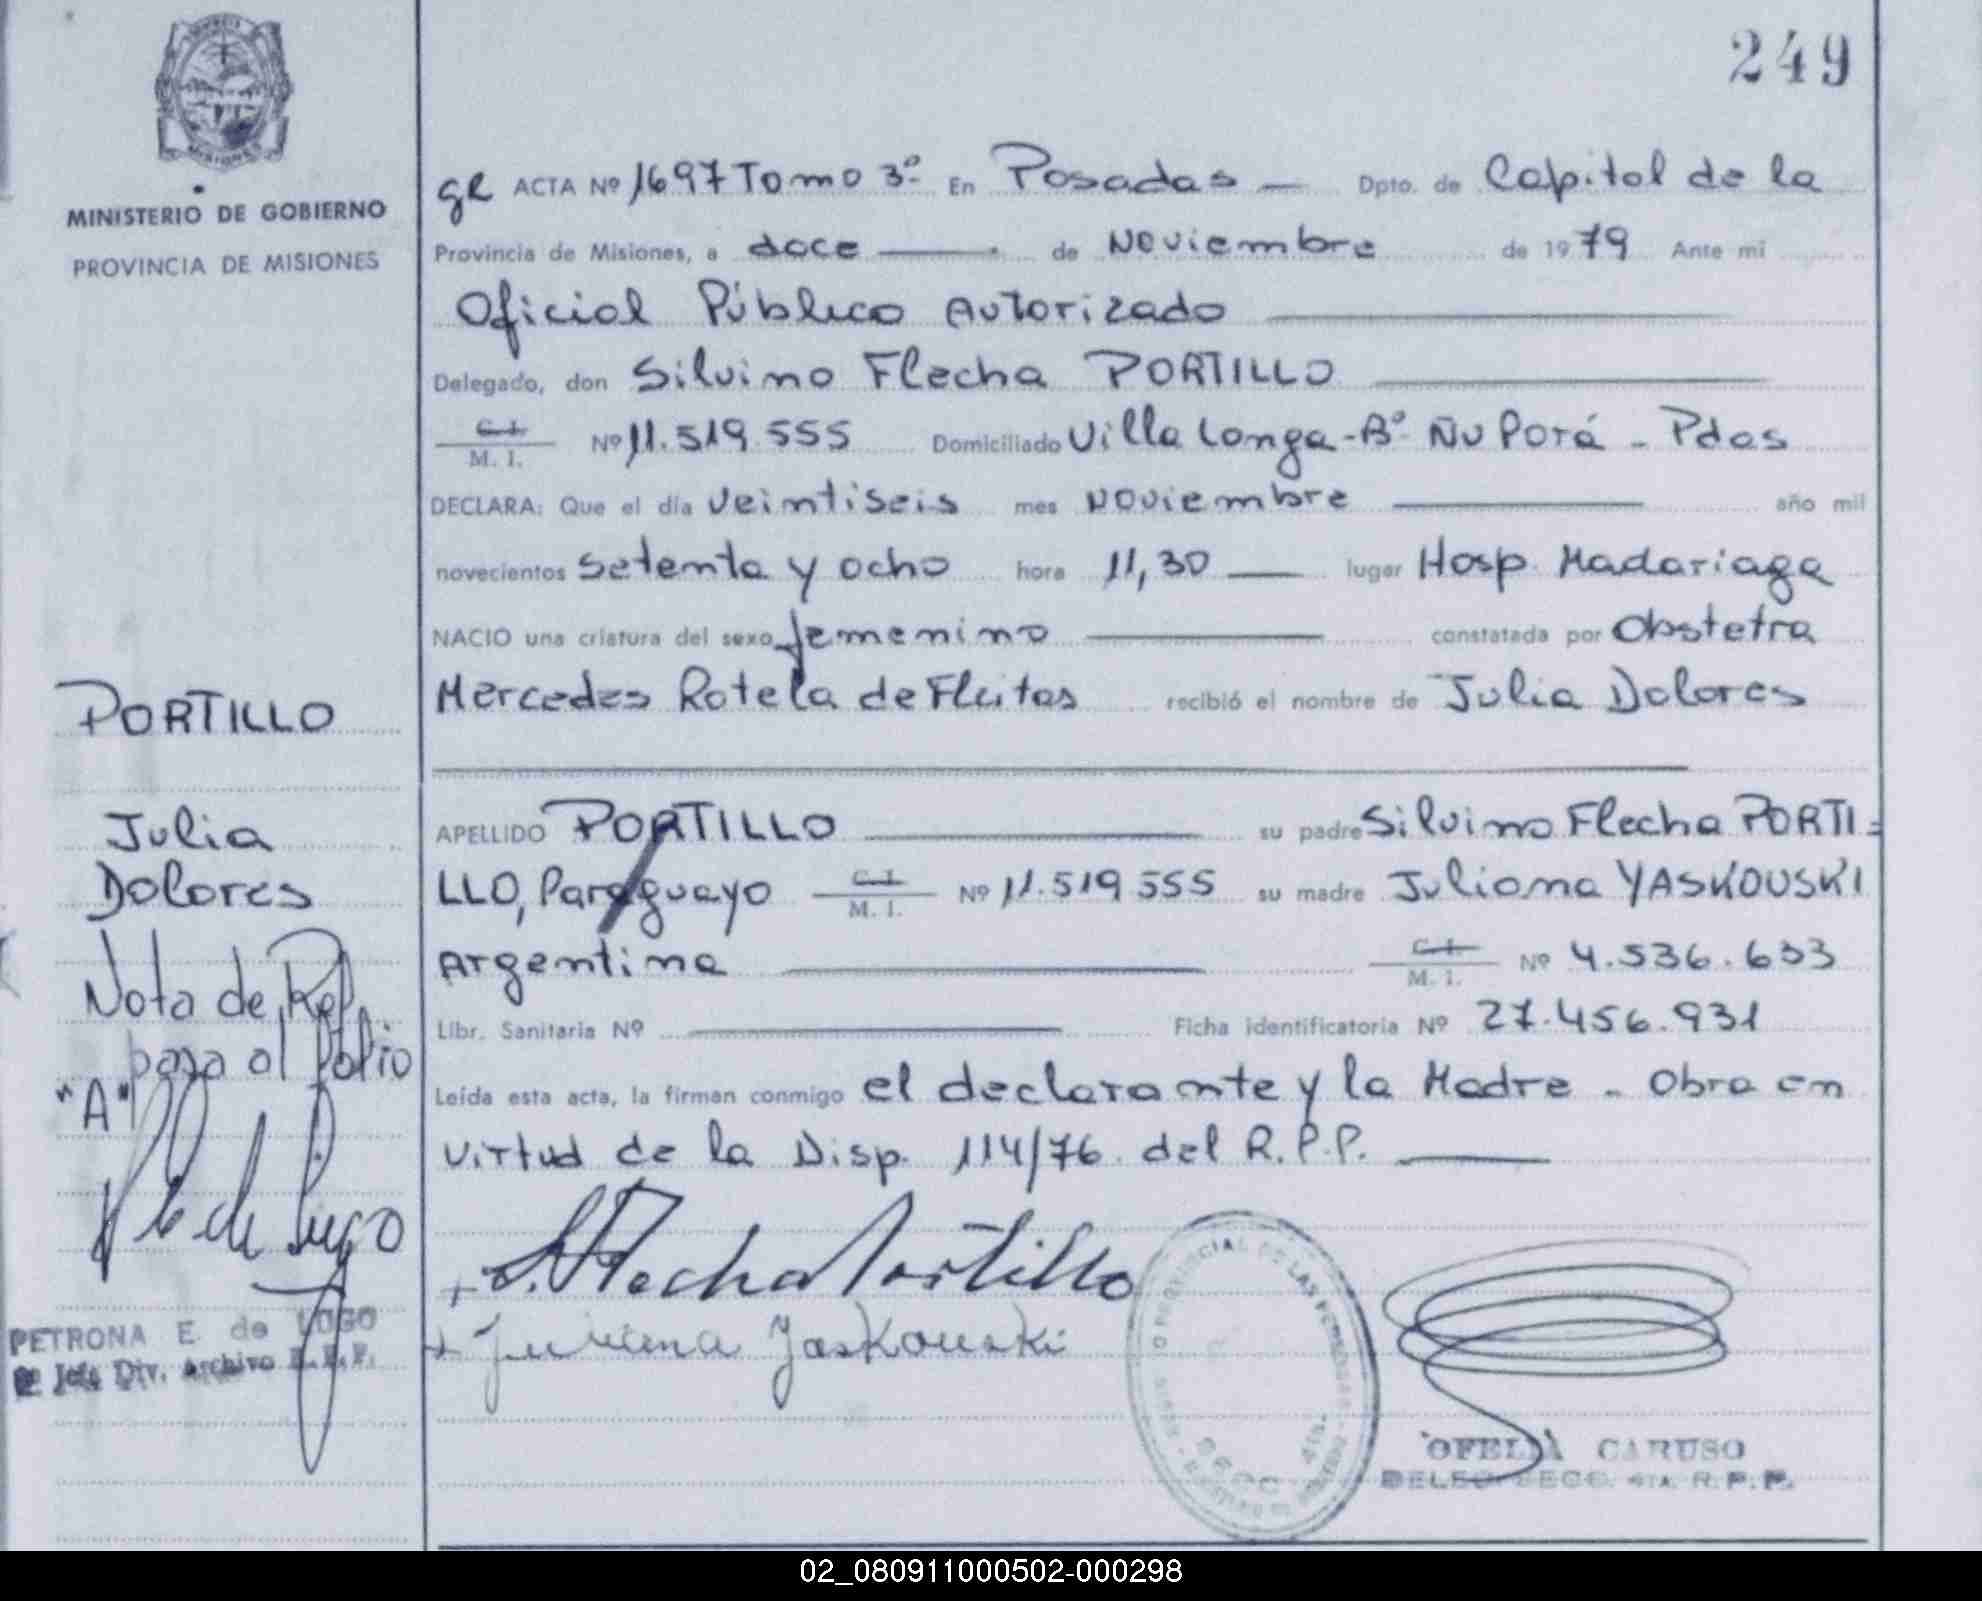 249
MISIONES
MINISTERIO DE GOBIERNO
PROVINCIA DE MISIONES
gR ACTA Nº 1697 Tomo 3º En Posadas — Dpto. de Capital de la
Provincia de Misiones, a doce — de Noviembre de 1979 Ante mi
Oficial Público Autorizado
Delegado, don Silvino Flecha PORTILLO
C. I. / M. I. Nº 11.519.555 Domiciliado Villa Longa - Bº Ñu Porá - Pdas
DECLARA: Que el día veintiseis mes Noviembre año mil
novecientos setenta y ocho hora 11,30 — lugar Hosp. Madariaga
NACIO una criatura del sexo femenino constatada por Obstetra
Mercedes Rotela de Fleitas recibió el nombre de Julia Dolores
APELLIDO PORTILLO su padre Silvino Flecha PORTI=
LLO, Paraguayo C. I. / M. I. Nº 11.519 555 su madre Juliana YASKOUSKI
Argentina C. I. / M. I. Nº 4.536.633
Libr. Sanitaria Nº Ficha identificatoria Nº 27.456.931
Leída esta acta, la firman conmigo el declarante y la Madre - Obra en
virtud de la Disp. 114/76 del R.P.P.
PORTILLO
Julia
Dolores
Nota de Ref.
pasa al folio
"A"
PETRONA E. de LUGO
Jefe Div. Archivo R.P.P.
S. Flecha Portillo
Juliana Yaskouski
PROVINCIAL DE LAS PERSONAS
SECC 4ta.
OFELIA CARUSO
DELEG. SECC. 4TA. R.P.P.
02_080911000502-000298